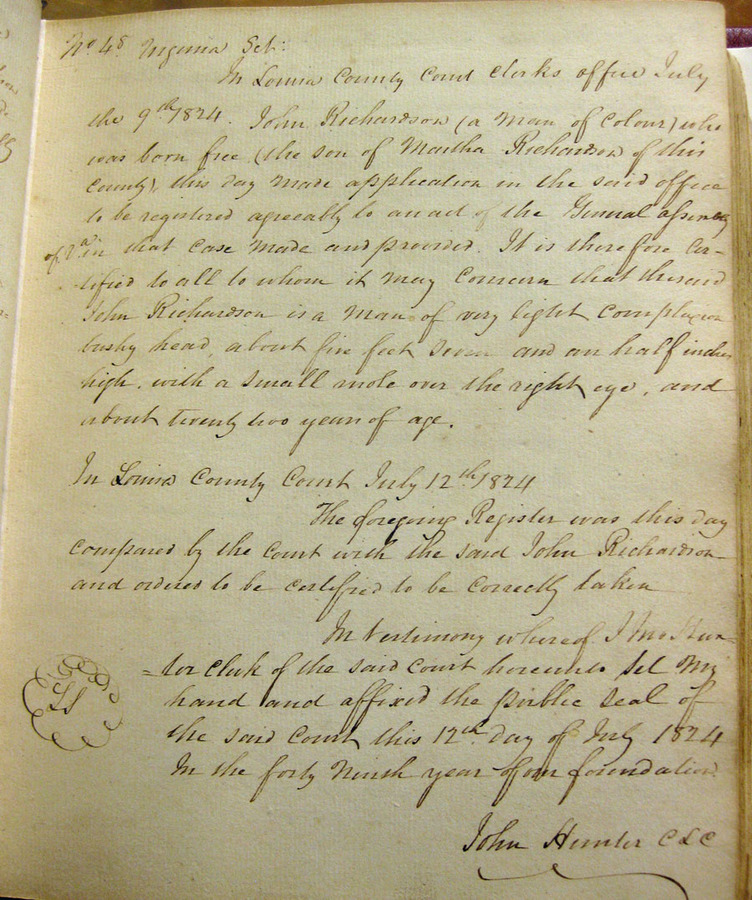 No. 48. Virginia Sct:
In Louisa County Court Clerks office July
the 9th 1824. John Richardson (a man of Colour) who
was born free, (the son of Martha Richardson of this
County), this day made application in the said office
to be registered agreeably to an act of the General assembly
of Va. in that case made and provided. It is therefore Cer-
tified to all to whom it may concern that the said
John Richardson is a man of very light complexion
bushy head, about five feet seven and an half inches
high, with a small mole over the right eye, and
about twenty two years of age.
In Louisa County Court July 12th 1824
The foregoing Register was this day
compared by the Court with the said John Richardson
and ordered to be certified to be correctly taken
In testimony whereof I Jno. Hun-
=ter clerk of the said court hereunto set my
LS
hand and affixed the public seal of
the said Court this 12th day of July 1824
In the forty Ninth year of our foundation.
John Hunter C L C